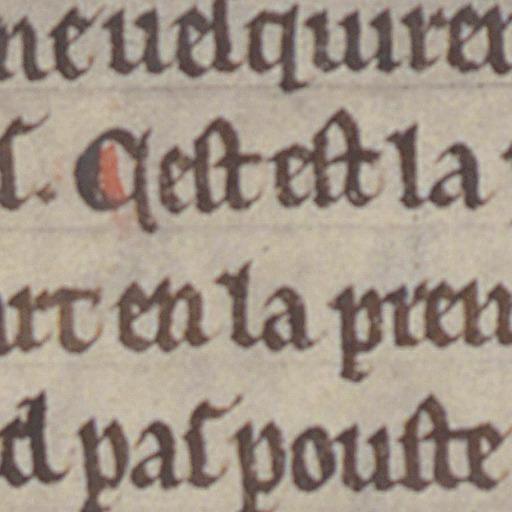 ne uelquirer
s. Cest est la
art en la prem
d pas pouste